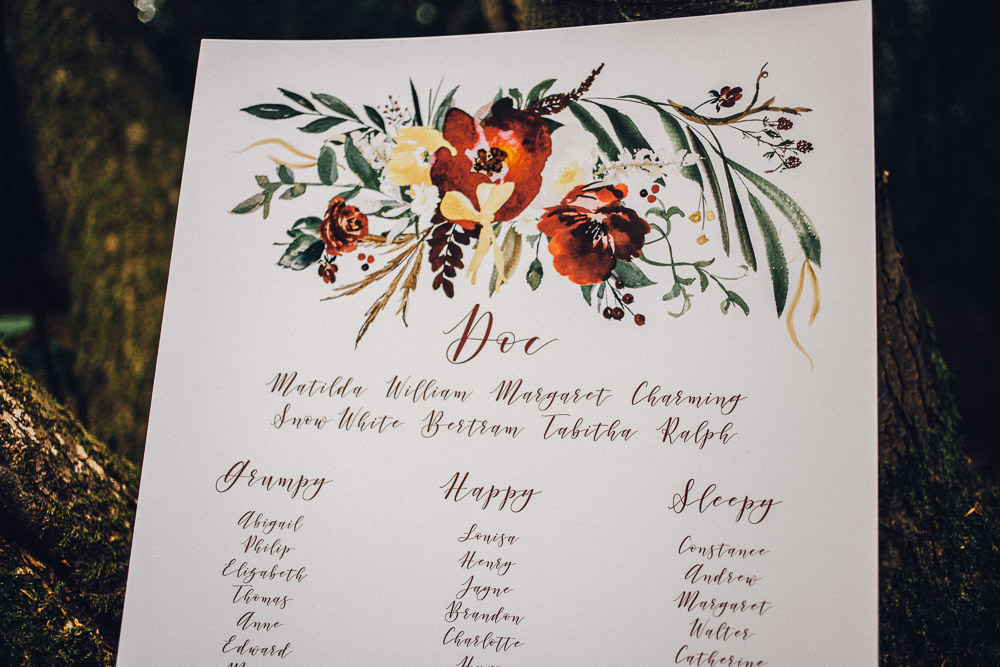 Doc
Matilda William Margaret Charming
Snow White Bertram Tabitha Ralph
Grumpy Happy Sleepy
Abigail Louisa Constance
Philip Henry Andrew
Elizabeth Jayne Margaret
Thomas Brandon Walter
Anne Charlotte Catherine
Edward